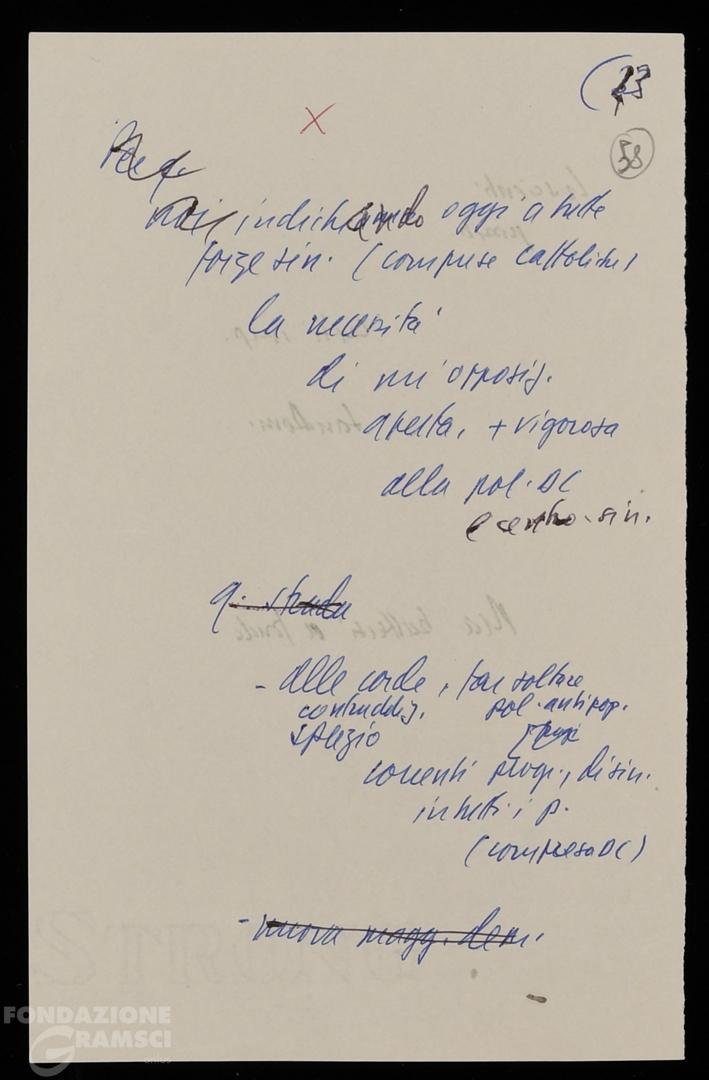 (23
58
X
Per q.
noi, indichiamo oggi a tutte
forze sin. (comprese cattoliche)
la necessità
di un'opposiz.
aperta, + vigorosa
alla pol. DC
e centro-sin.
q. strada
- alle corde, far saltare
contraddiz. pol. antipop.
spazio
correnti progr., di sin.
in tutti i p.
(compresa DC)
- nuova magg. dem.
FONDAZIONE
GRAMSCI
onlus